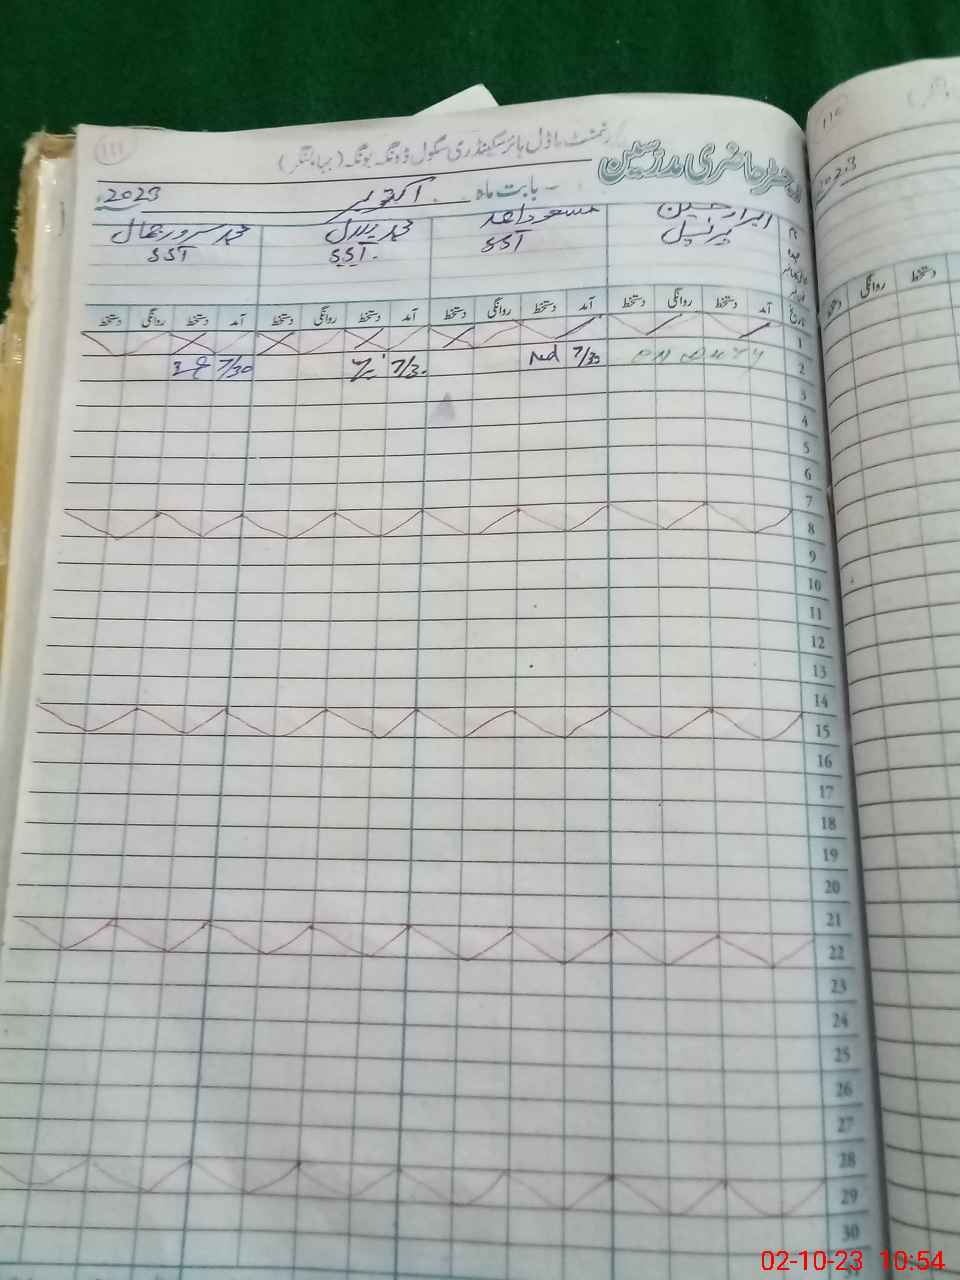 111
گورنمنٹ ماڈل ہائر سیکنڈری سکول ڈونگہ بونگہ (بہاولنگر)
رجسٹر حاضری مدرسین
بابت ماہ اکتوبر 2023
ابرار حسین مسعود احمد محمد
پرنسپل SST SST SST
تاریخ آمد دستخط روانگی دستخط آمد دستخط روانگی دستخط آمد دستخط روانگی دستخط آمد دستخط روانگی دستخط
1
2 ON DUTY 7/30 7/30 7/30
3
4
5
6
7
8
9
10
11
12
13
14
15
16
17
18
19
20
21
22
23
24
25
26
27
28
29
30
2023
دستخط روانگی دستخط
02-10-23 10:54